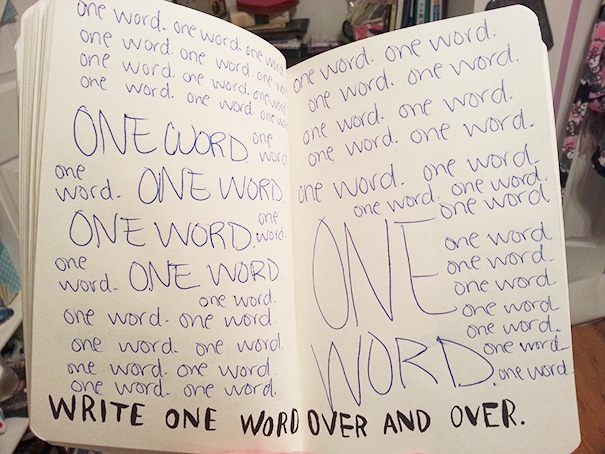 one word. one word. one word
one word. one word. one
one word. one word. one word
one word. one word. one word
ONE WORD one word
one word. ONE WORD.
ONE WORD. one word.
one word. ONE WORD
one word.
one word. one word.
one word. one word.
one word. one word
one word. one word.
one word. one word.
one word. one word.
one word. one word.
one word. one word.
one word. one word.
one word. one word.
one word
ONE
WORD.
one word
one word.
one word.
one word
one word.
one word
one word.
WRITE ONE WORD OVER AND OVER.